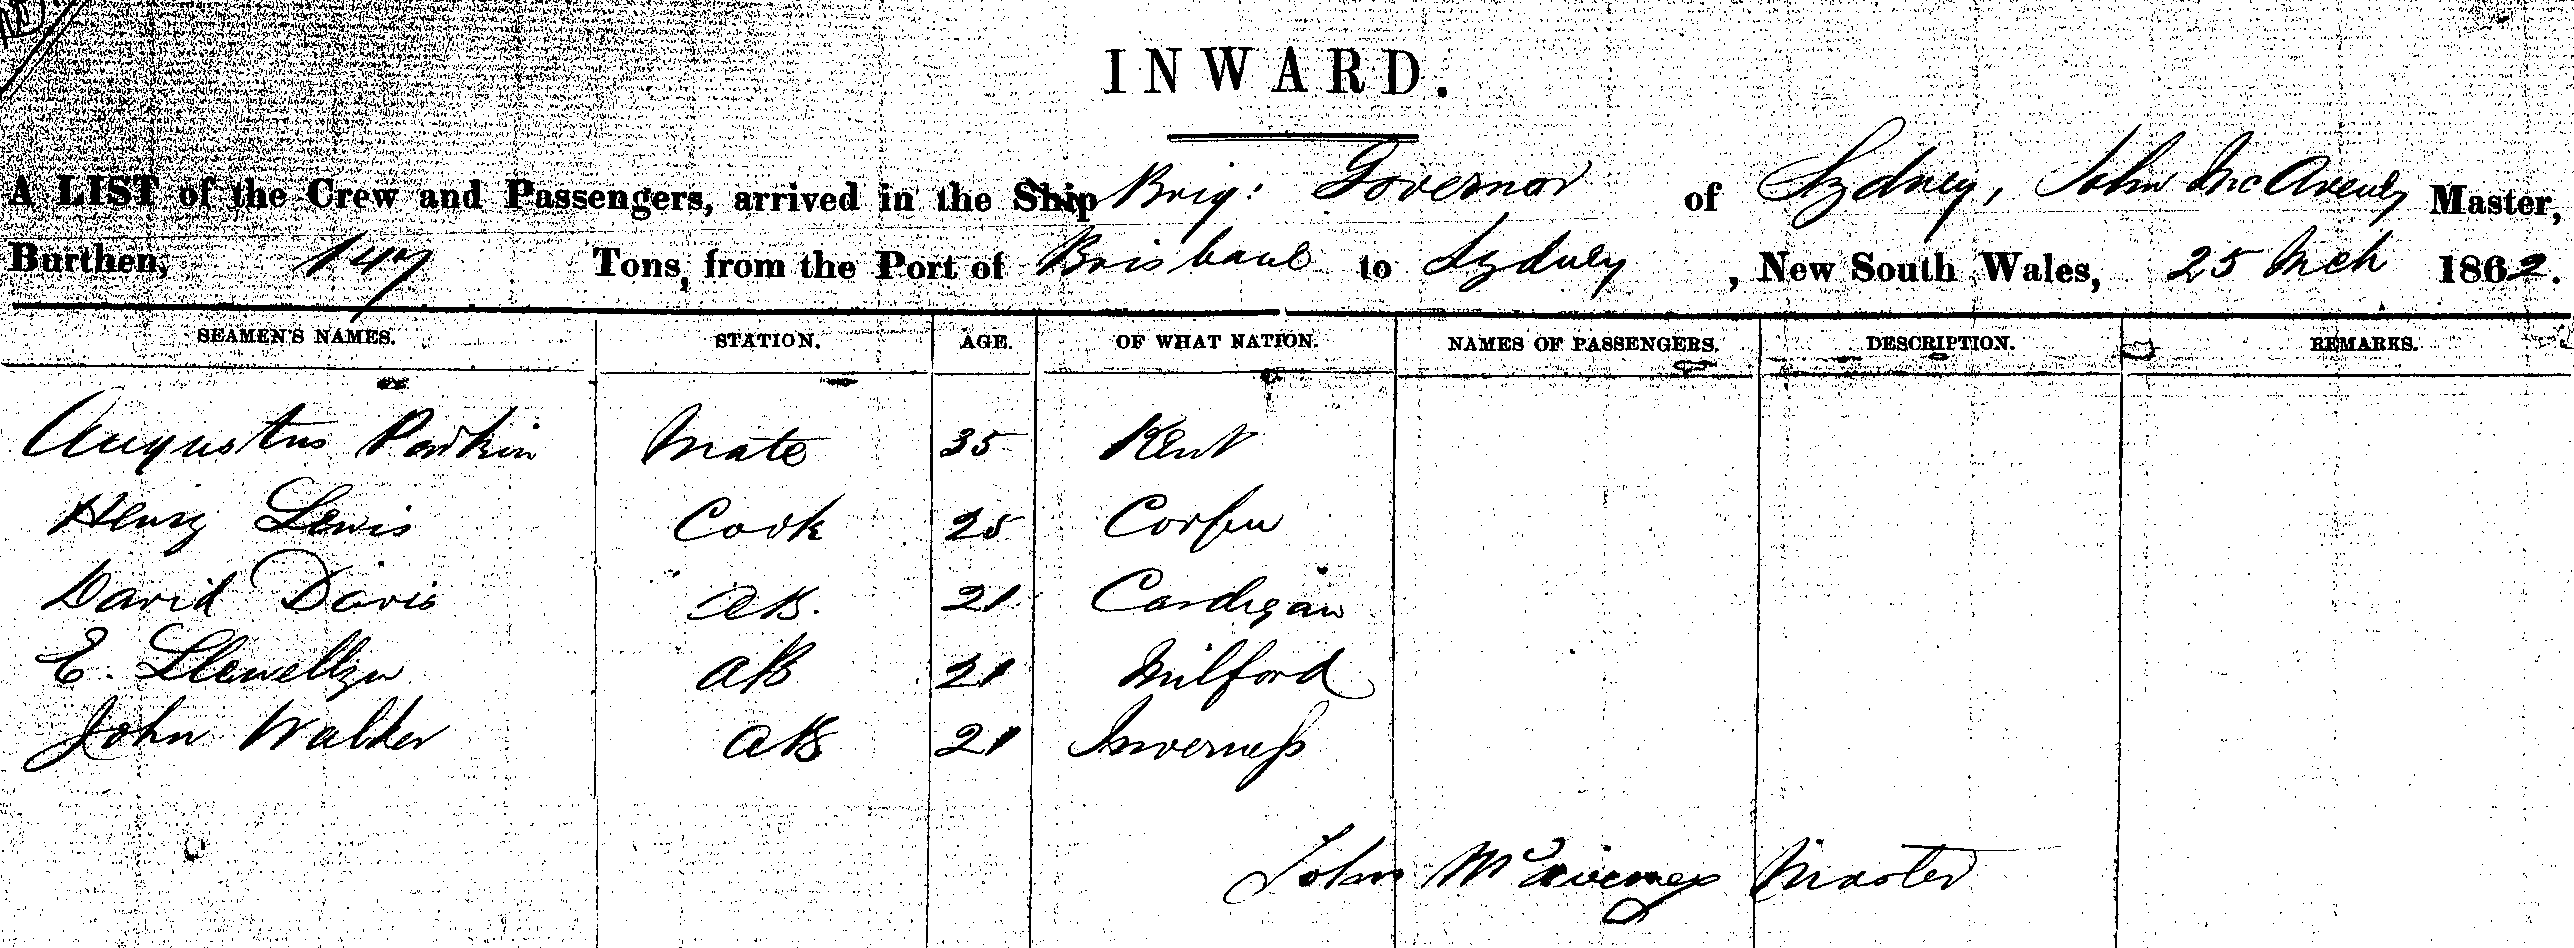 INWARD.
A LIST of the Crew and Passengers, arrived in the Ship Brig: Governor of Sydney, John McAvenly Master,
Burthen, 147 Tons, from the Port of Brisbane to Sydney, New South Wales, 25 Mch 1862.
SEAMEN'S NAMES. STATION. AGE. OF WHAT NATION. NAMES OF PASSENGERS. DESCRIPTION. REMARKS.
Augustus Parkin Mate 35 Kent
Henry Lewis Cook 25 Corfu
David Davis AB. 21 Cardigan
E. Llewellyn AB 21 Milford
John Walker AB 21 Inverness
John Master